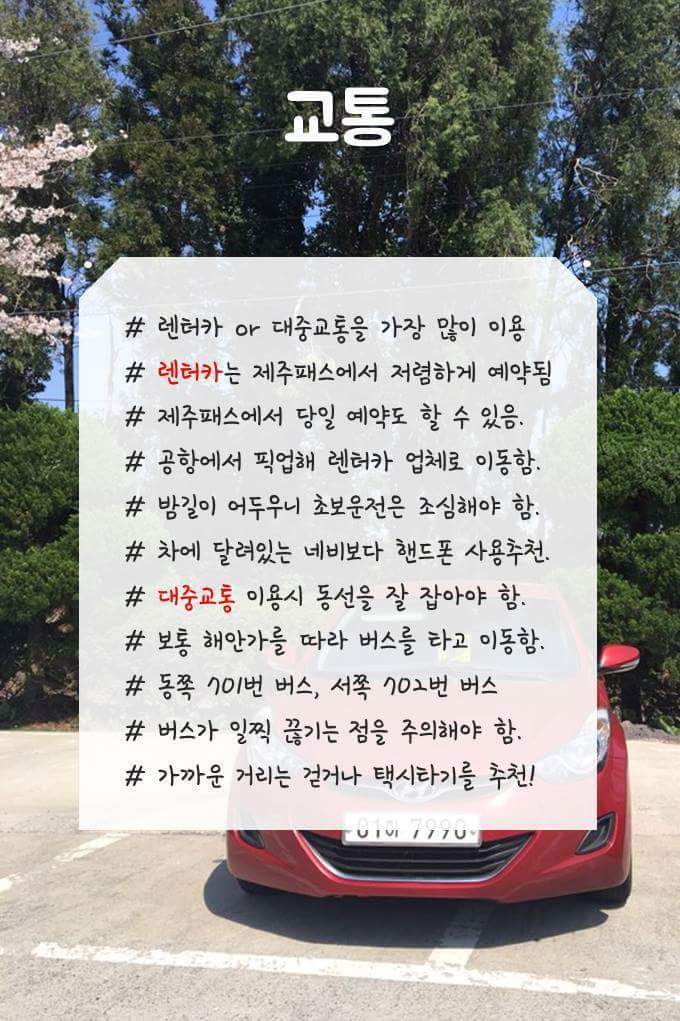 교통
# 렌터카 or 대중교통을 가장 많이 이용
# 렌터카는 제주패스에서 저렴하게 예약됨
# 제주패스에서 당일 예약도 할 수 있음.
# 공항에서 픽업해 렌터카 업체로 이동함.
# 밤길이 어두우니 초보운전은 조심해야 함.
# 차에 달려있는 네비보다 핸드폰 사용추천.
# 대중교통 이용시 동선을 잘 잡아야 함.
# 보통 해안가를 따라 버스를 타고 이동함.
# 동쪽 701번 버스, 서쪽 702번 버스
# 버스가 일찍 끊기는 점을 주의해야 함.
# 가까운 거리는 걷거나 택시타기를 추천!
01허 7990